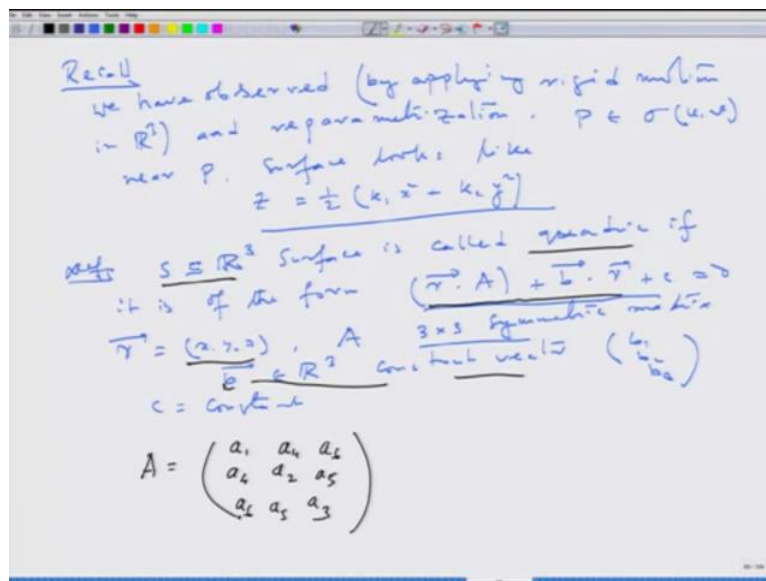 Recall
we have observed (by applying rigid motion
in ℝ³) and reparametrization. P ∈ σ(u,v)
near P. Surface looks like
z = ½ (k₁ x² - k₂ y²)
Def S ⊆ ℝ³ Surface is called quadric if
it is of the form (r⃗ · A) + b⃗ · r⃗ + c = 0
r⃗ = (x, y, z), A 3×3 symmetric matrix
b⃗ ∈ ℝ³ constant vector (b₁ b₂ b₃)
c = constant
A = ( a₁ a₄ a₆
a₄ a₂ a₅
a₆ a₅ a₃ )